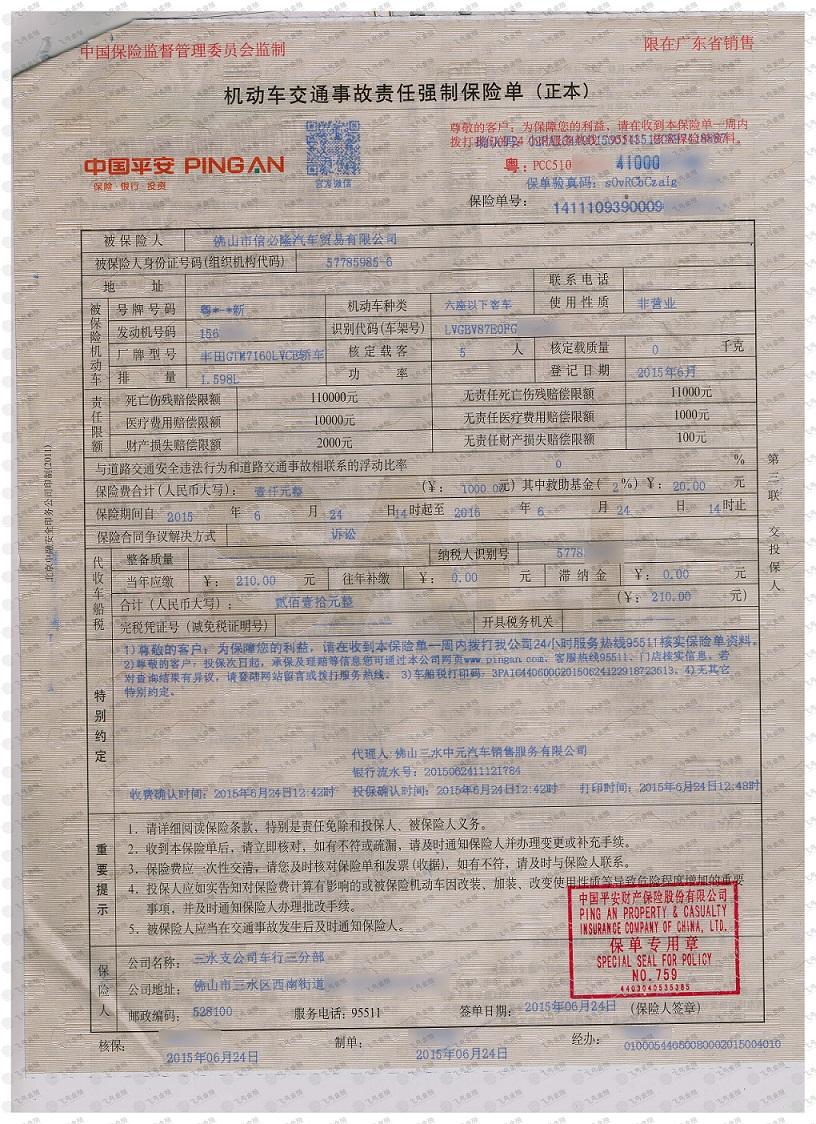 中国保险监督管理委员会监制
限在广东省销售
机动车交通事故责任强制保险单 (正本)
尊敬的客户：为保障您的利益，请在收到本保险单一周内
中国平安 PING AN
保险·银行·投资
官方微信
粤: PCC510 41000
保单验真码: sOvRCbCzaig
保险单号: 1411109390009
被保险人 佛山市信必隆汽车贸易有限公司
被保险人身份证号码(组织机构代码) 57785985-6
地 址 联系电话
被保险机动车
号牌号码 粤*-*新 机动车种类 六座以下客车 使用性质 非营业
发动机号码 156 识别代码(车架号) LVGBV87E0FG
厂牌型号 丰田GTM7160LVCB轿车 核定载客 5 人 核定载质量 0 千克
排 量 1.598L 功 率 登记日期 2015年6月
责任限额
死亡伤残赔偿限额 110000元 无责任死亡伤残赔偿限额 11000元
医疗费用赔偿限额 10000元 无责任医疗费用赔偿限额 1000元
财产损失赔偿限额 2000元 无责任财产损失赔偿限额 100元
与道路交通安全违法行为和道路交通事故相联系的浮动比率 0 %
保险费合计(人民币大写): 壹仟元整 (¥: 1000.00元) 其中救助基金( 2 %) ¥: 20.00 元
保险期间自 2015 年 6 月 24 日14时起至 2016 年 6 月 24 日 14时止
保险合同争议解决方式 诉讼
代收车船税
整备质量 纳税人识别号 5778
当年应缴 ¥: 210.00 元 往年补缴 ¥: 0.00 元 滞纳金 ¥: 0.00 元
合计(人民币大写): 贰佰壹拾元整 (¥: 210.00 元)
完税凭证号(减免税证明号) 开具税务机关
特别约定
1)尊敬的客户：为保障您的利益，请在收到本保险单一周内拨打我公司24小时服务热线95511核实保险单资料。
2)尊敬的客户：投保次日起，承保及理赔等信息您可通过本公司网页www.pingan.com、客服热线95511、门店核实信息，若
对查询结果有异议，请登陆网站留言或拨打服务热线。 3)车船税打印码: 3PAIC440600G2015062412291872​3613. 4)无其它
特别约定。
代理人:佛山三水中元汽车销售服务有限公司
银行流水号: 2015062411121784
收费确认时间: 2015年6月24日12:42时 投保确认时间: 2015年6月24日12:42时 打印时间: 2015年6月24日12:48时
重要提示
1. 请详细阅读保险条款，特别是责任免除和投保人、被保险人义务。
2. 收到本保险单后，请立即核对，如有不符或疏漏，请及时通知保险人并办理变更或补充手续。
3. 保险费应一次性交清，请您及时核对保险单和发票(收据)，如有不符，请及时与保险人联系。
4. 投保人应如实告知对保险费计算有影响的或被保险机动车因改装、加装、改变使用性质等导致危险程度增加的重要
事项，并及时通知保险人办理批改手续。
5. 被保险人应当在交通事故发生后及时通知保险人。
中国平安财产保险股份有限公司
PING AN PROPERTY & CASUALTY
INSURANCE COMPANY OF CHINA, LTD.
保单专用章
SPECIAL SEAL FOR POLICY
NO.759
4403040535385
保险人
公司名称: 三水支公司车行三分部
公司地址: 佛山市三水区西南街道
邮政编码: 528100 服务电话: 95511 签单日期: 2015年06月24日 (保险人签章)
核保: 2015年06月24日 制单: 2015年06月24日 经办: 01000544080080002015004010
第三联 交投保人